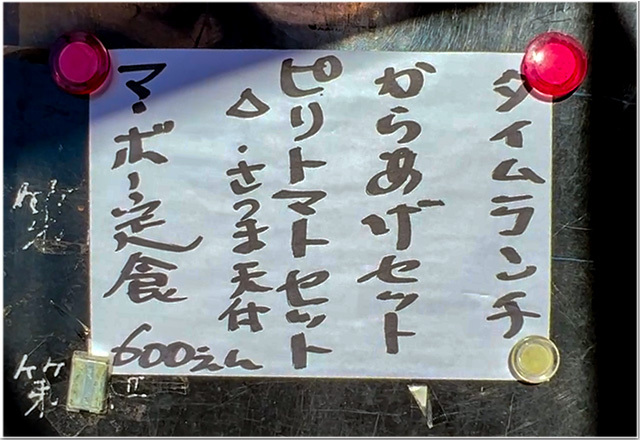 タイムランチ
からあげセット
ピリトマトセット
△・さつま天付
マ・ボー定食
600えん